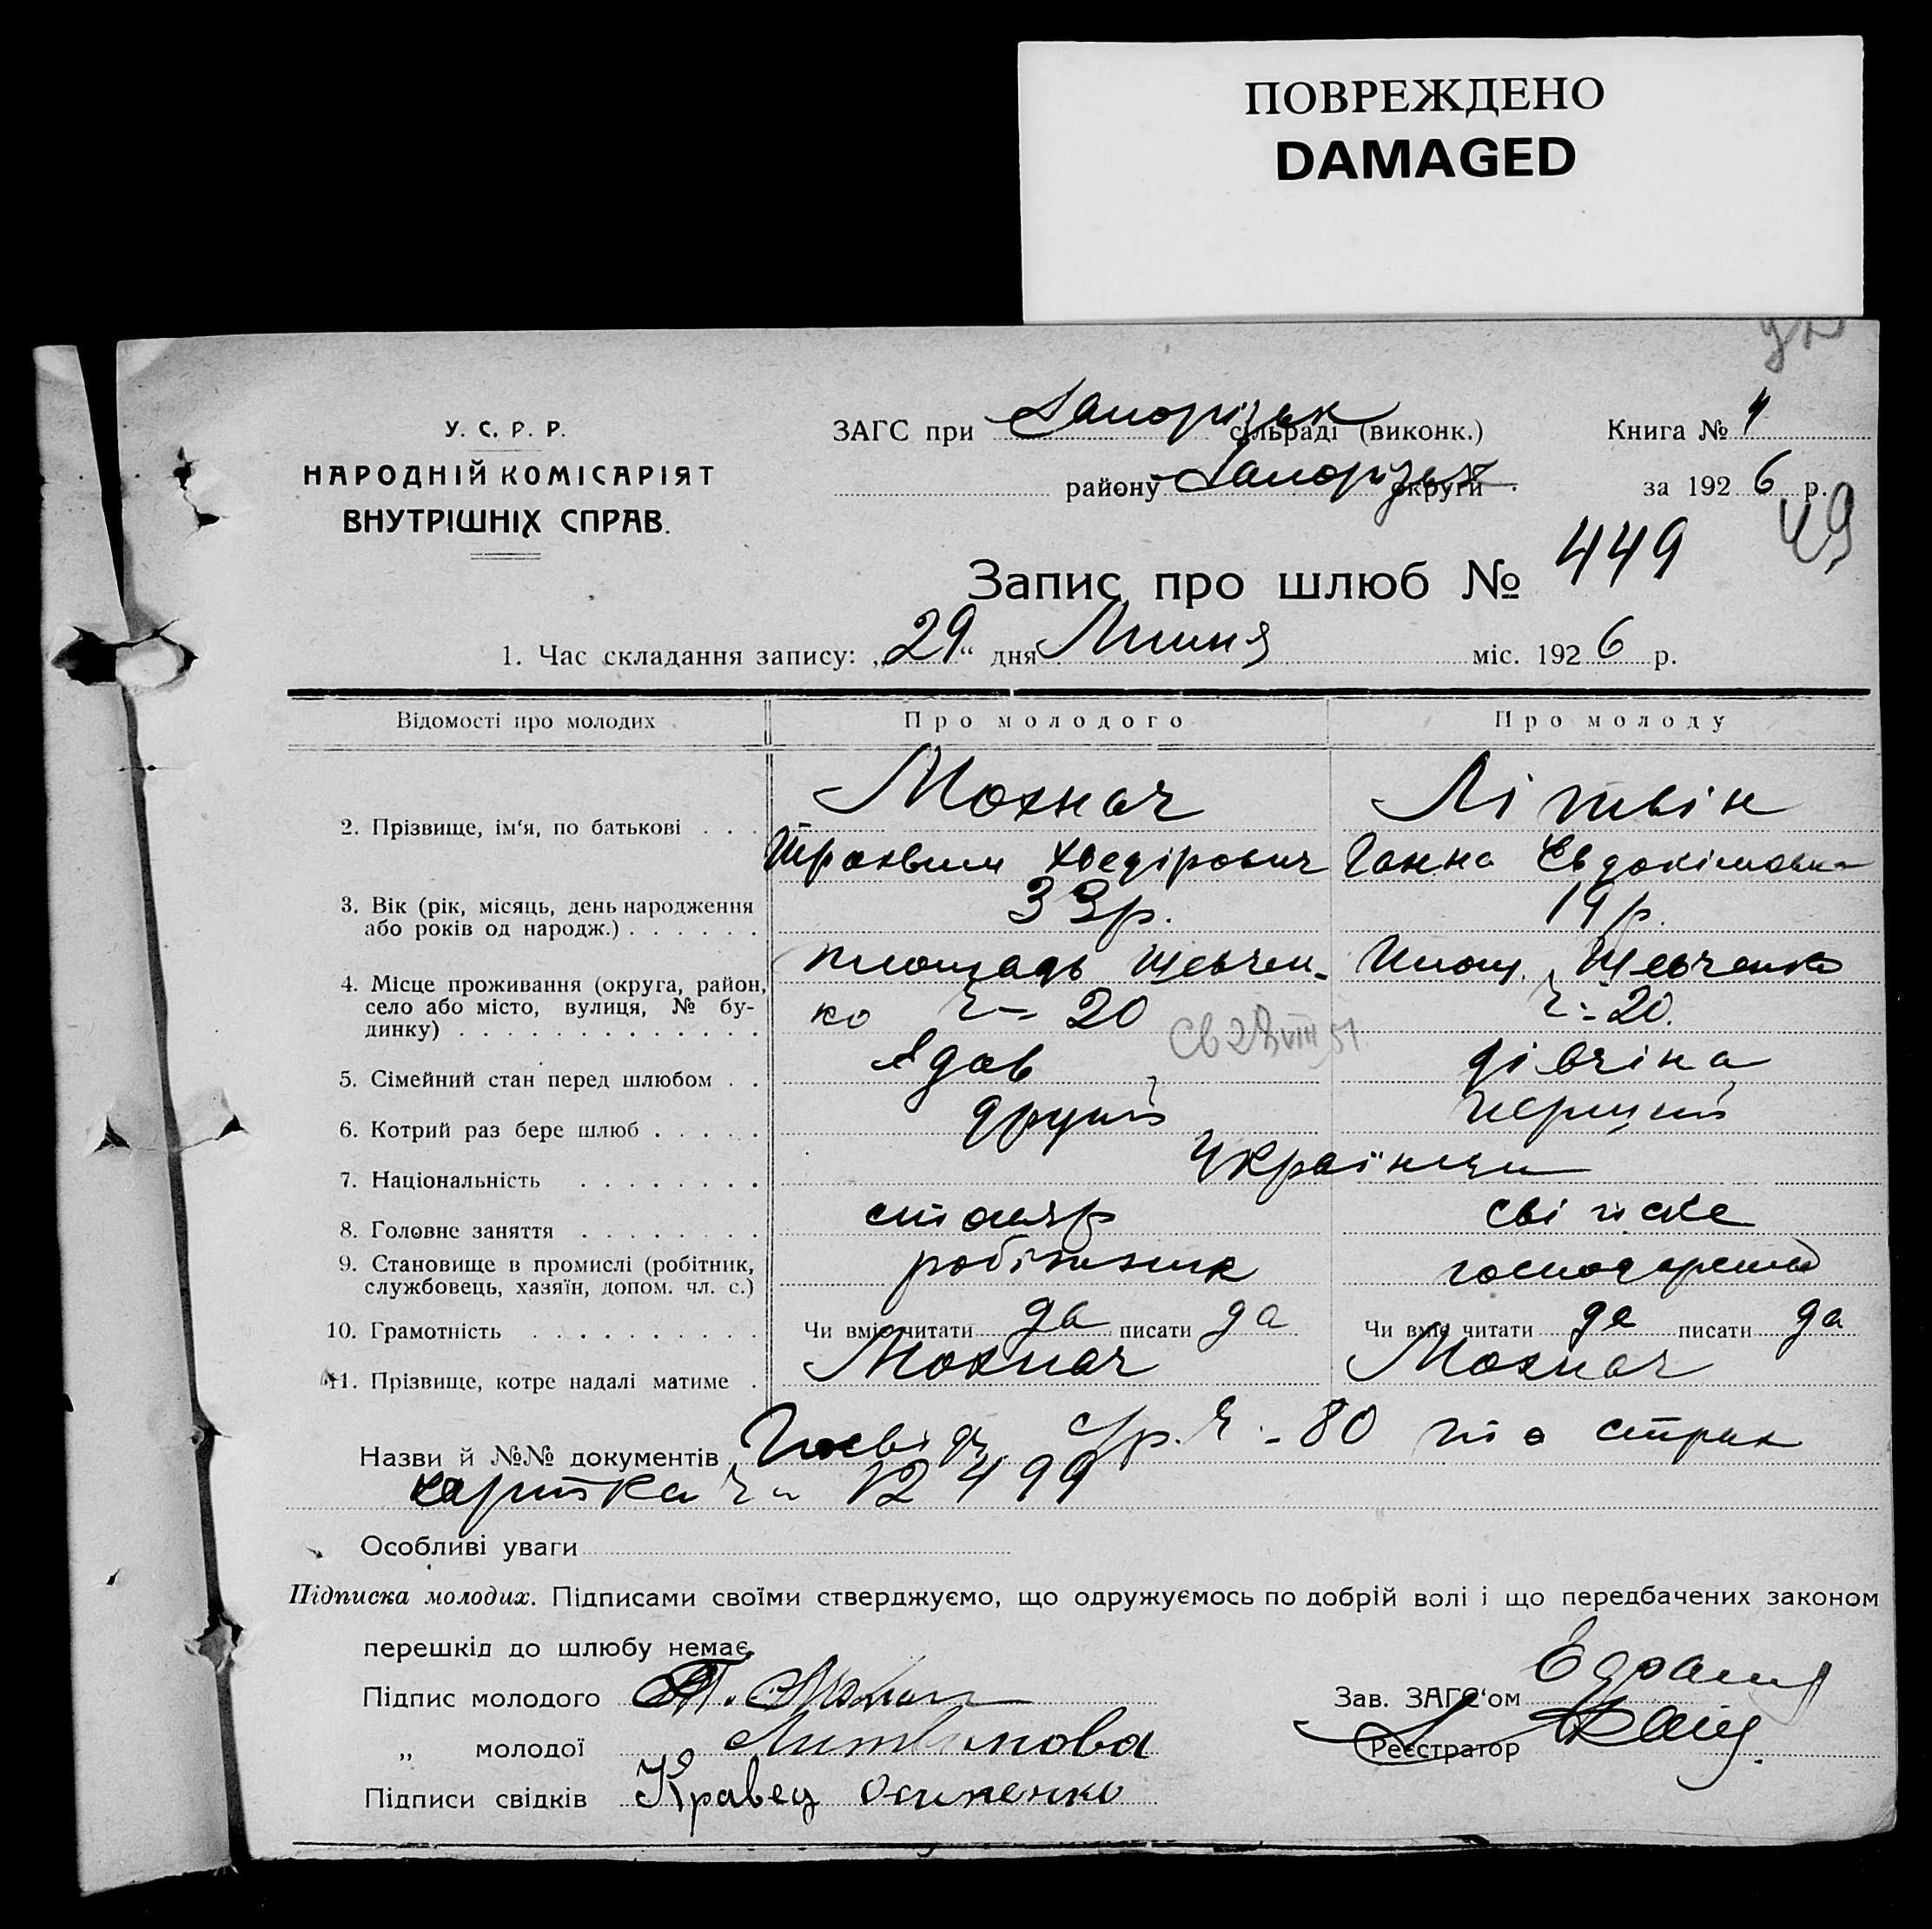 ПОВРЕЖДЕНО
DAMAGED
У. С. Р. Р.
НАРОДНІЙ КОМІСАРІЯТ
ВНУТРІШНІХ СПРАВ.
ЗАГС при Запорізьк сільраді (виконк.)
Книга № 4
району Запорізьк округи
за 1926 р.
49
Запис про шлюб № 449
1. Час складання запису: „29“ дня Липня міс. 1926 р.
Відомості про молодих Про молодого Про молоду
Мохнач Літвін
2. Прізвище, ім‘я, по батькові . . .
Трохвим Хведірович Ганна Євдокімовна
3. Вік (рік, місяць, день народження
або років од народж.) . . . . . .
33р. 19р.
4. Місце проживання (округа, район,
село або місто, вулиця, № бу-
динку) . . . . . . . . . . . . .
площадь Шевчен- Площ. Шевченко
ко ч– 20 ч– 20.
Св 28 VIII 51.
5. Сімейний стан перед шлюбом . . Вдов дівчіна
6. Котрий раз бере шлюб . . . . . другий перший
7. Національність . . . . . . . . Українци
8. Головне заняття . . . . . . . . столяр
9. Становище в промислі (робітник,
службовець, хазяїн, допом. чл. с.)
робітник
10. Грамотність . . . . . . . . . . Чи вміє читати да писати да Чи вміє читати да писати да
11. Прізвище, котре надалі матиме . Мохнач Мохнач
Назви й №№ документів Посвідч. ч – 80 та страх
картка ч – 12499
Особливі уваги
Підписка молодих. Підписами своїми стверджуємо, що одружуємось по добрій волі і що передбачених законом
перешкід до шлюбу немає.
Підпис молодого Т. Мохнач
Зав. ЗАГС‘ом
„ молодої Литвинова
Реєстратор
Підписи свідків Кравец Осипенко